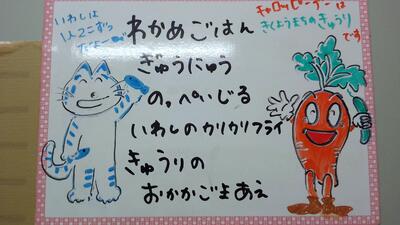 いわしは
1人2こずつ
だよー
キャロッピーデーは
きくようまちのきゅうり
です
わかめごはん
ぎゅうにゅう
の。ぺいじる
いわしのカリカリフライ
きゅうりの
おかかごまあえ